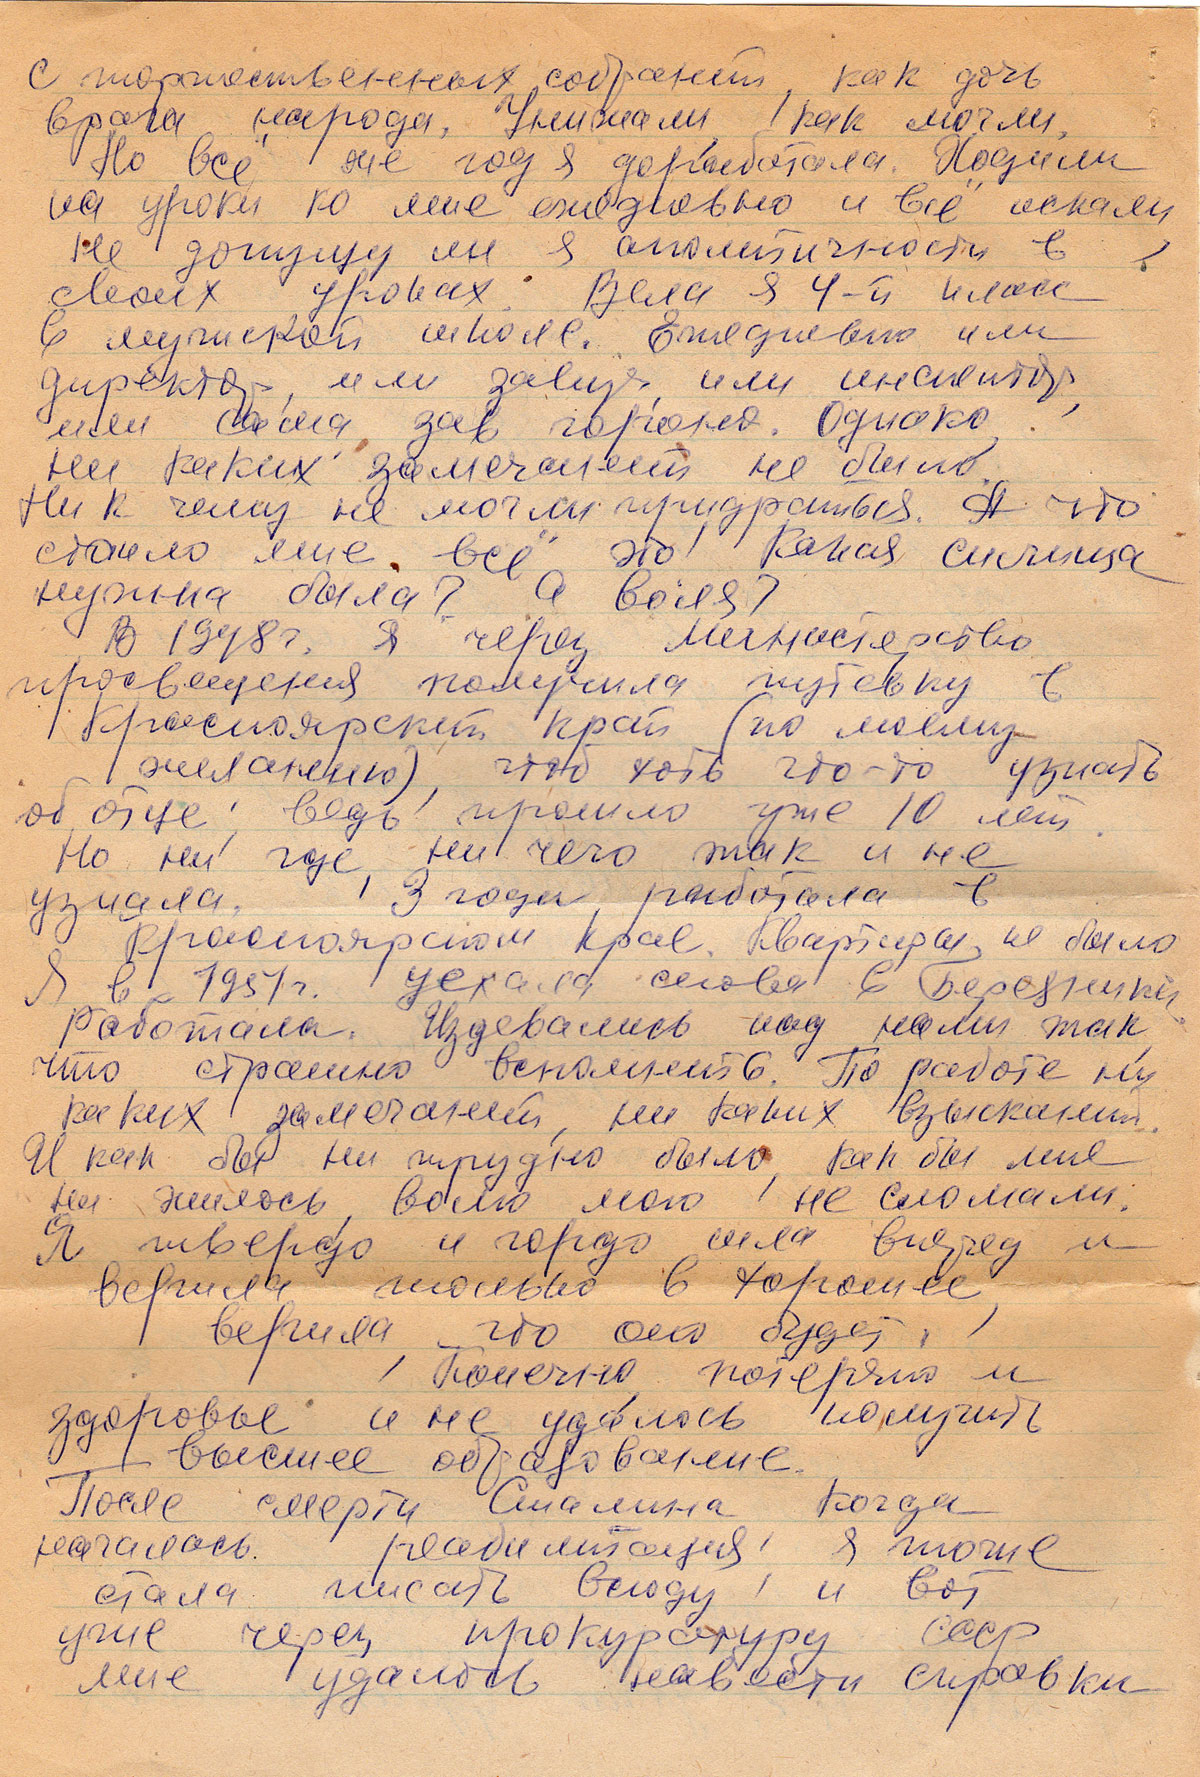 с торжественных собраний, как дочь
врага народа. Унижали, как могли.
Но всё же год я доработала. Ходили
на уроки ко мне ежедневно и всё искали,
не допущу ли я аполитичности в
своих уроках. Вела я 4-й класс
в мужской школе. Ежедневно или
директор, или завуч, или инспектор,
или сама зав гороно. Однако,
ни каких замечаний не было.
Ни к чему не могли придраться. А что
стоило мне всё это! Какая силища
нужна была? А воля?
В 1948 г. я через Министерство
просвещения получила путевку в
Красноярский край (по моему
желанию), чтоб хоть что-то узнать
об отце, ведь прошло уже 10 лет.
Но ни где, ни чего так и не
узнала. 3 года работала в
Красноярском крае. Квартиры не было
Я в 1951 г. уехала снова в Березники.
Работала. Издевались над нами так,
что страшно вспомнить. По работе ни
каких замечаний, ни каких взысканий.
И как бы ни трудно было, как бы мне
ни жилось, волю мою не сломали.
Я твердо и гордо шла вперед и
верила только в хорошее,
верила, что оно будет.
Конечно, потеряно и
здоровье и не удалось получить
высшее образование.
После смерти Сталина когда
началась реабилитация, я тоже
стала писать всюду, и вот
уже через прокуратуру СССР
мне удалось навести справки